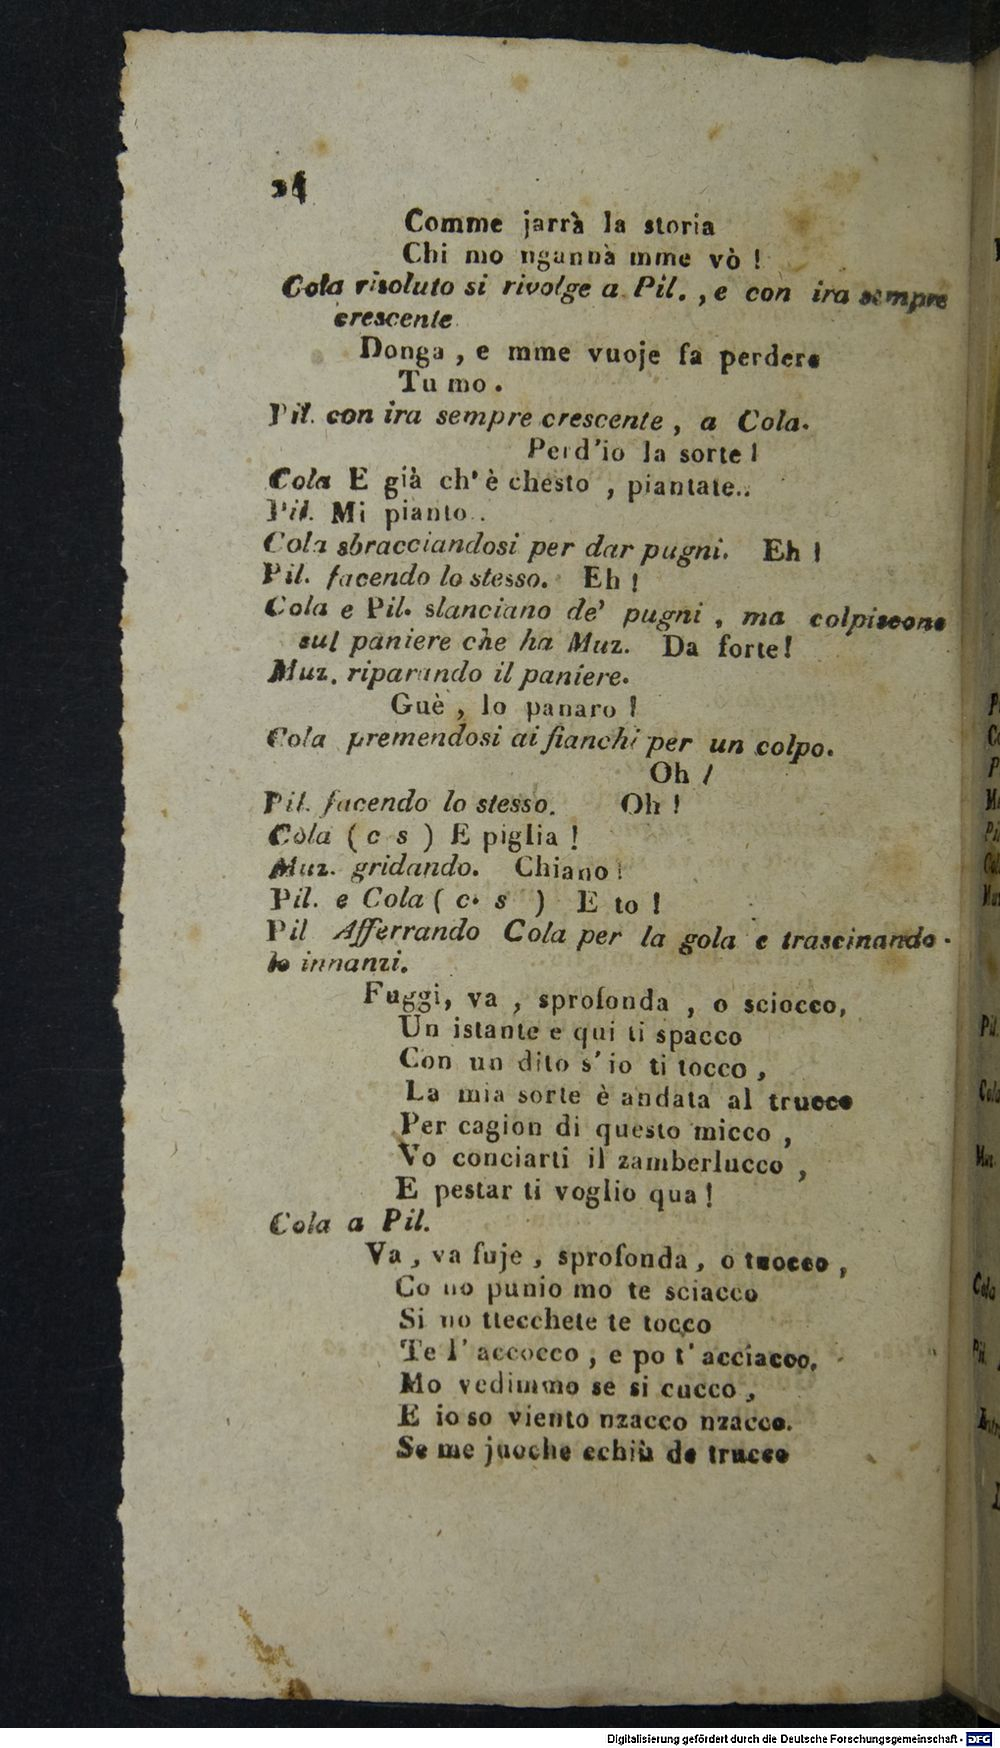 24
Comme jarrà la storia
Chi mo ngannà mme vò !
Cola risoluto si rivolge a Pil. , e con ira sempre
crescente
Donga , e mme vuoje fa perdere
Tu mo .
Pil. con ira sempre crescente , a Cola.
Perd'io la sorte !
Cola E già ch' è chesto , piantate..
Pil. Mi pianto..
Cola sbracciandosi per dar pugni. Eh !
Pil. facendo lo stesso. Eh !
Cola e Pil. slanciano de' pugni , ma colpiscono
sul paniere che ha Muz. Da forte!
Muz. riparando il paniere.
Guè , lo panaro !
Cola premendosi ai fianchi per un colpo.
Oh !
Pil. facendo lo stesso. Oh !
Cola ( c s ) E piglia !
Muz. gridando. Chiano !
Pil. e Cola ( c. s ) E to !
Pil Afferrando Cola per la gola e trascinando-
lo innanzi.
Fuggi, va , sprofonda , o sciocco,
Un istante e qui ti spacco
Con un dito s' io ti tocco ,
La mia sorte è andata al trucco
Per cagion di questo micco ,
Vo conciarti il zamberlucco ,
E pestar ti voglio qua !
Cola a Pil.
Va , va fuje , sprofonda , o tuocco ,
Co no punio mo te sciacco
Si no ttecchete te tocco
Te l' accocco , e po t' acciacco,
Mo vedimmo se si cucco ,
E io so viento nzacco nzacco.
Se me juoche cchiù de trucco
Digitalisierung gefördert durch die Deutsche Forschungsgemeinschaft - DFG